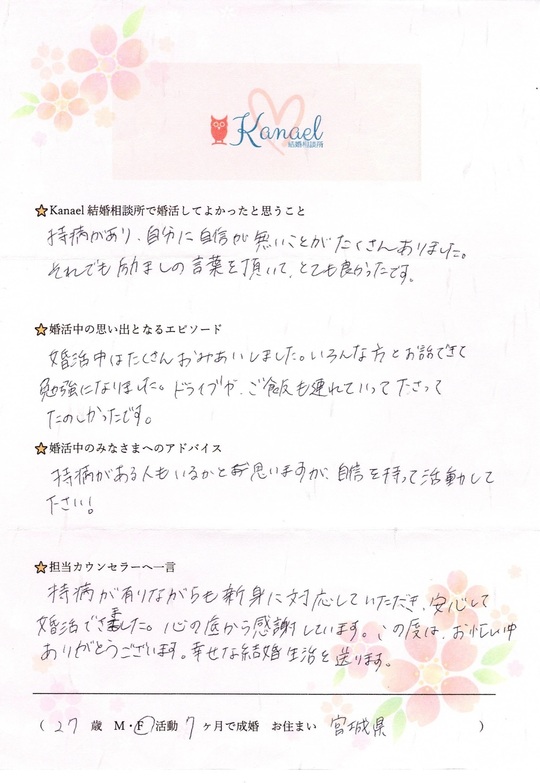 Kanael
結婚相談所
Kanael 結婚相談所で婚活してよかったと思うこと
持病があり、自分に自信が無いことがたくさんありました。
それでも励ましの言葉を頂いて、とても良かったです。
婚活中の思い出となるエピソード
婚活中はたくさんおみあいしました。いろんな方とお話できて
勉強になりました。ドライブや、ご飯も連れていって下さって
たのしかったです。
婚活中のみなさまへのアドバイス
持病がある人もいるかと思いますが、自信を持って活動して
下さい!
担当カウンセラーへ一言
持病が有りながらも新身に対応していただき、安心して
婚活できました。心の底から感謝しています。この度は、お忙い中
ありがとうございます。幸せな結婚生活を送ります。
( 27 歳 M・F 活動 7 ヶ月で成婚 お住まい 宮城県 )